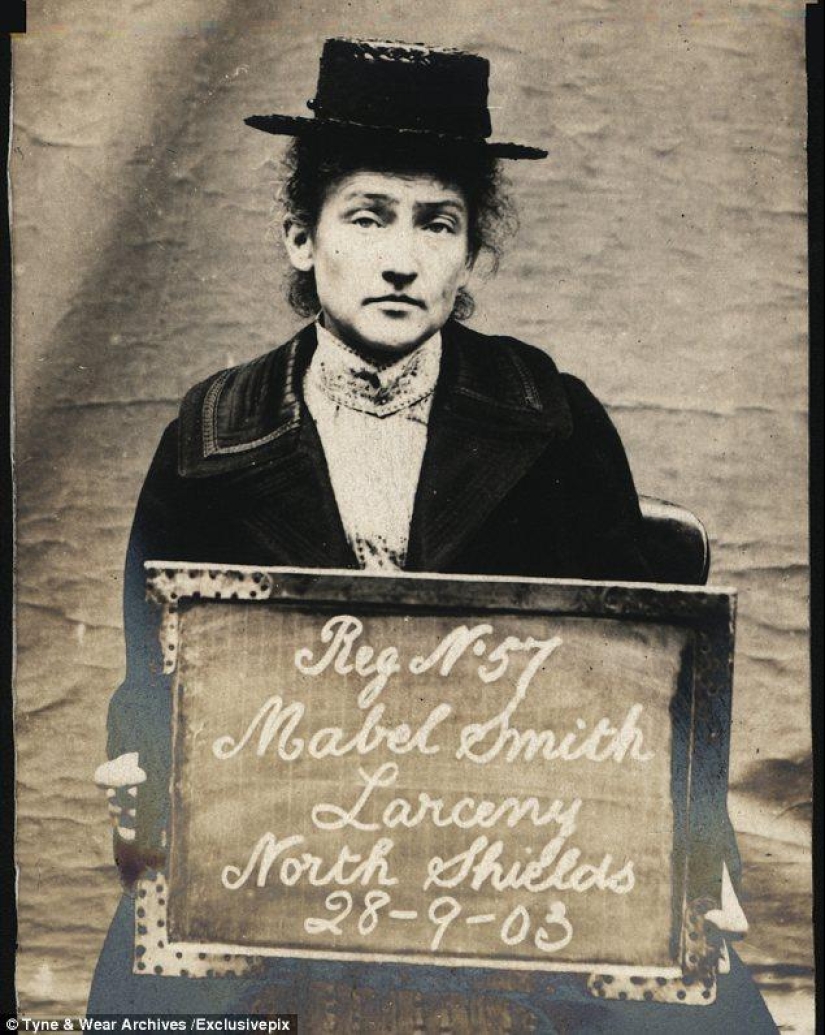 Reg No. 57
Mabel Smith
Larceny
North Shields
28-9-03
© Tyne & Wear Archives /Exclusivepix